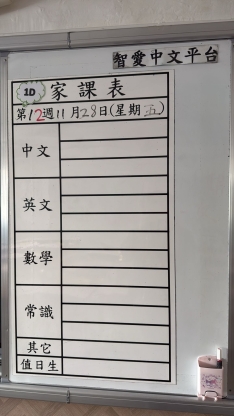 智愛中文平台
1D 家課表
第12週11月28日(星期五)
中文
英文
數學
常識
其它
值日生